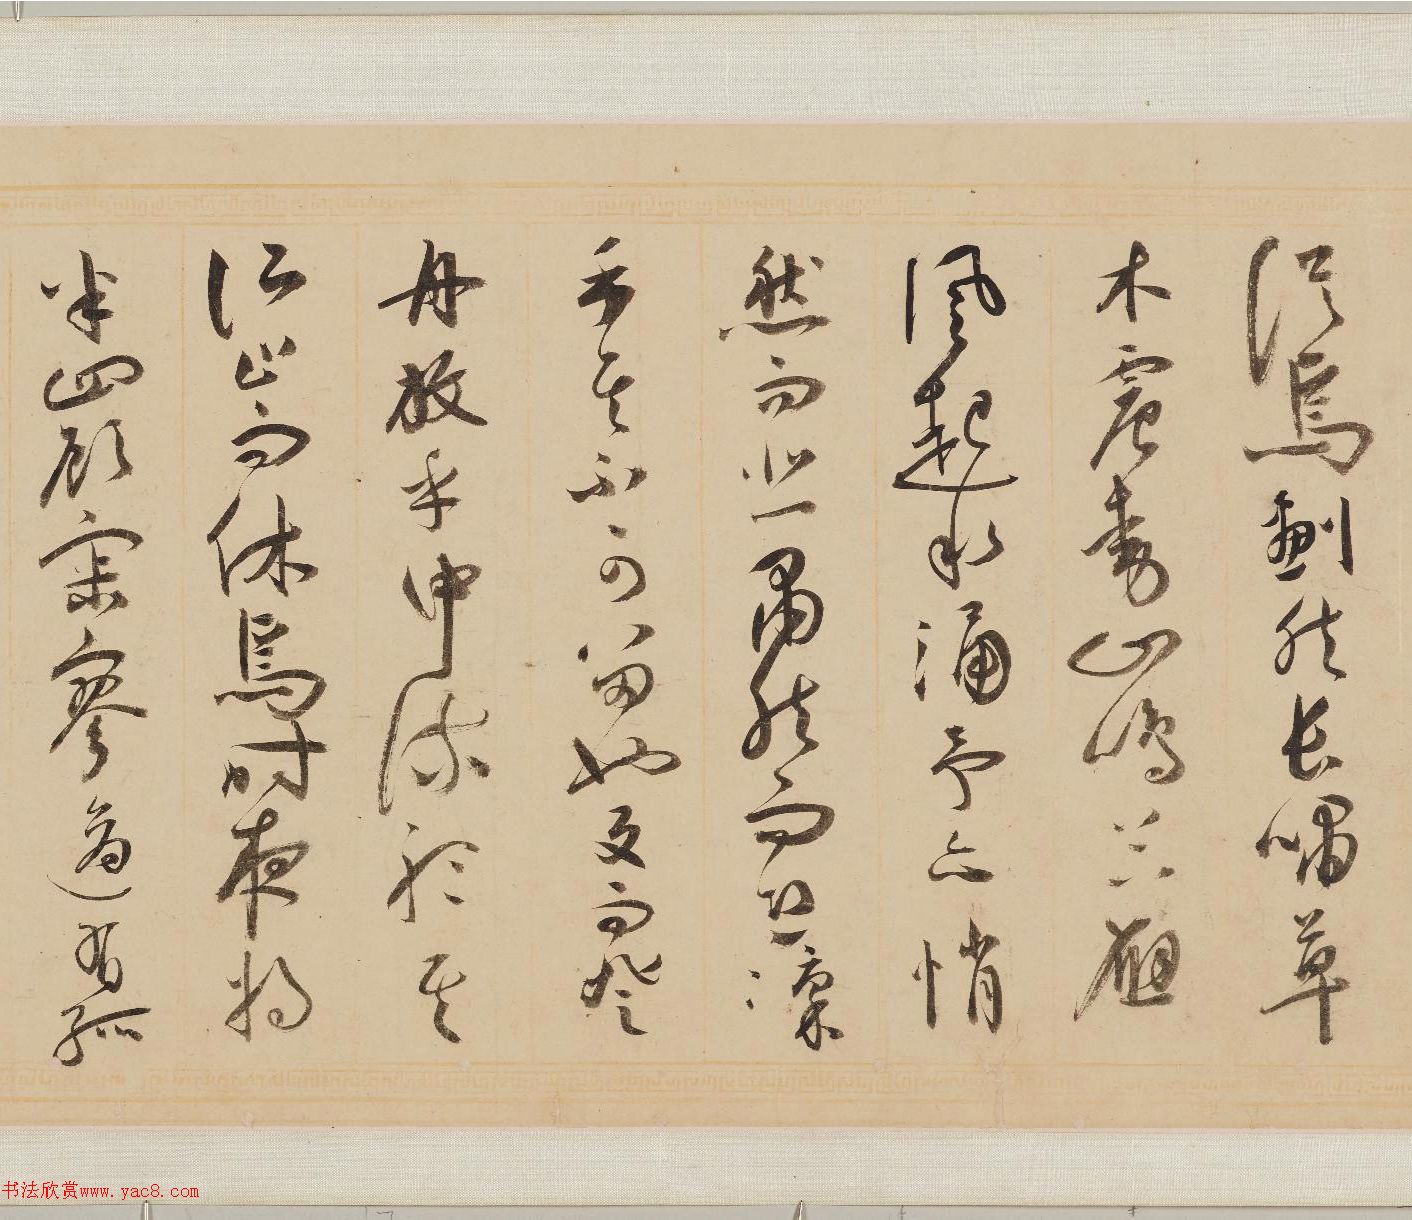 從焉劃然長嘯草
木震動山鳴谷應
風起水涌予亦悄
然而悲肅然而恐凜
乎其不可留也反而登
舟放乎中流聽其
所止而休焉時夜將
半四顧寂寥適有孤
书法欣赏www.yac8.com